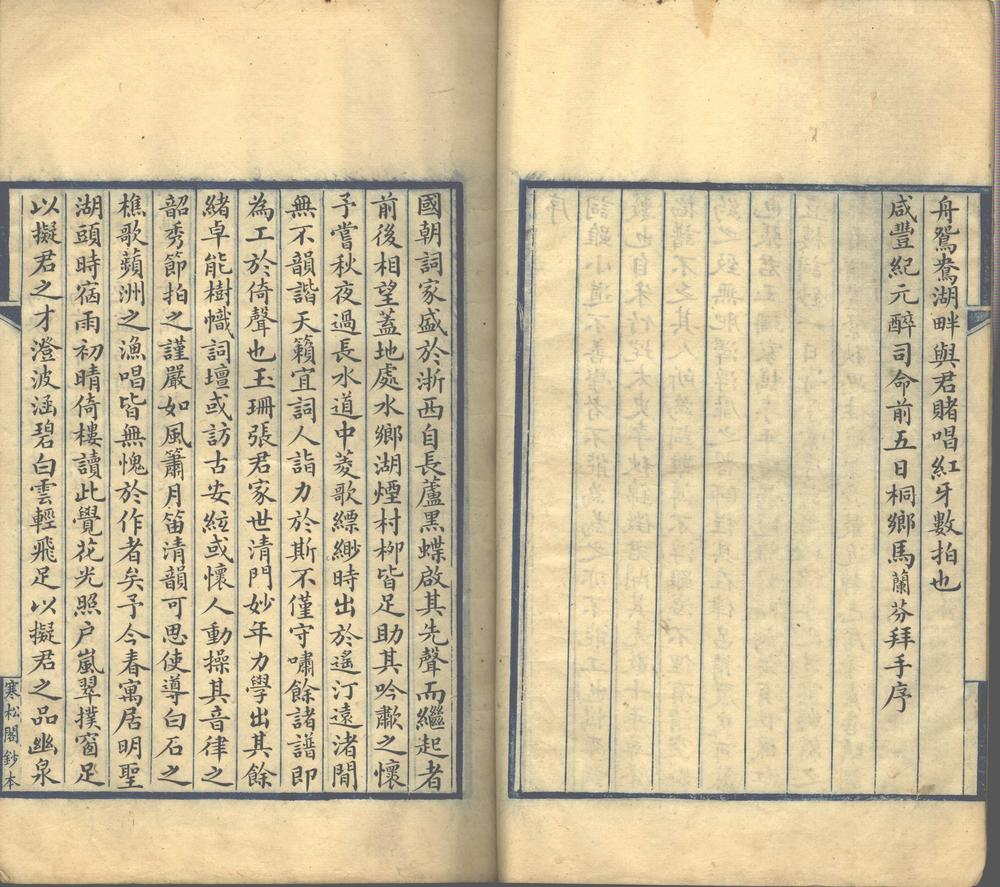 舟鴛鴦湖畔與君賭唱紅牙數拍也
咸豐紀元醉司命前五日桐鄉馬蘭芬拜手序
國朝詞家盛於浙西自長蘆黑蝶啟其先聲而繼起者
前後相望蓋地處水鄉湖煙村柳皆足助其吟歗之懷
予嘗秋夜過長水道中菱歌縹緲時出於遙汀遠渚間
無不韻諧天籟宜詞人詣力於斯不僅守嘯餘諸譜即
為工於倚聲也玉珊張君家世清門妙年力學出其餘
緒卓能樹幟詞壇或訪古安絃或懷人動操其音律之
韶秀節拍之謹嚴如風簫月笛清韻可思使導白石之
樵歌蘋洲之漁唱皆無愧於作者矣予今春寓居明聖
湖頭時宿雨初晴倚樓讀此覺花光照户嵐翠撲窗足
以擬君之才澄波涵碧白雲輕飛足以擬君之品幽泉
寒松閣鈔本